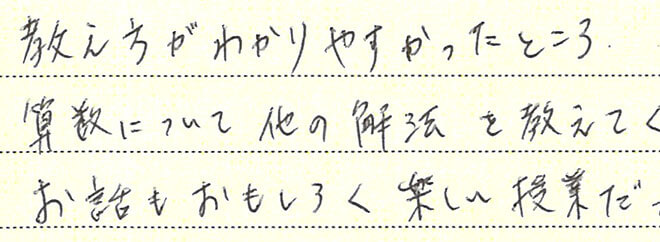 教え方がわかりやすかったところ.
算数について他の解法を教えてく
お話もおもしろく楽しい授業だっ